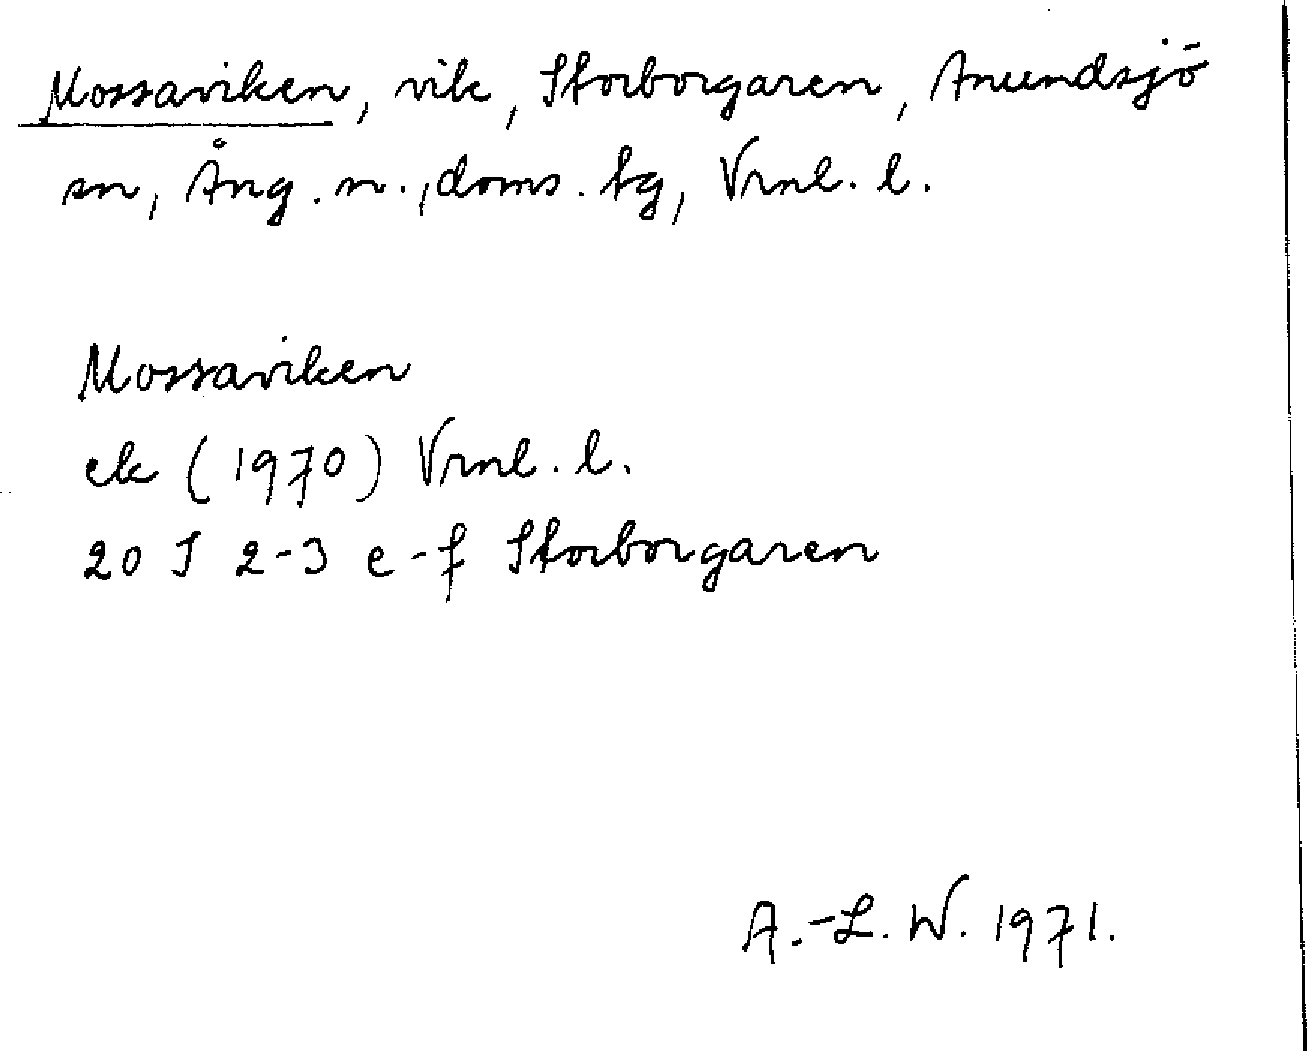 Mossaviken, vik, Storborgaren, Anundsjö
sn, Ång. n., doms. tg, Vrnl. l.
Mossaviken
ek (1970) Vrnl. l.
20 J 2-3 e-f Storborgaren
A.-L. W. 1971.